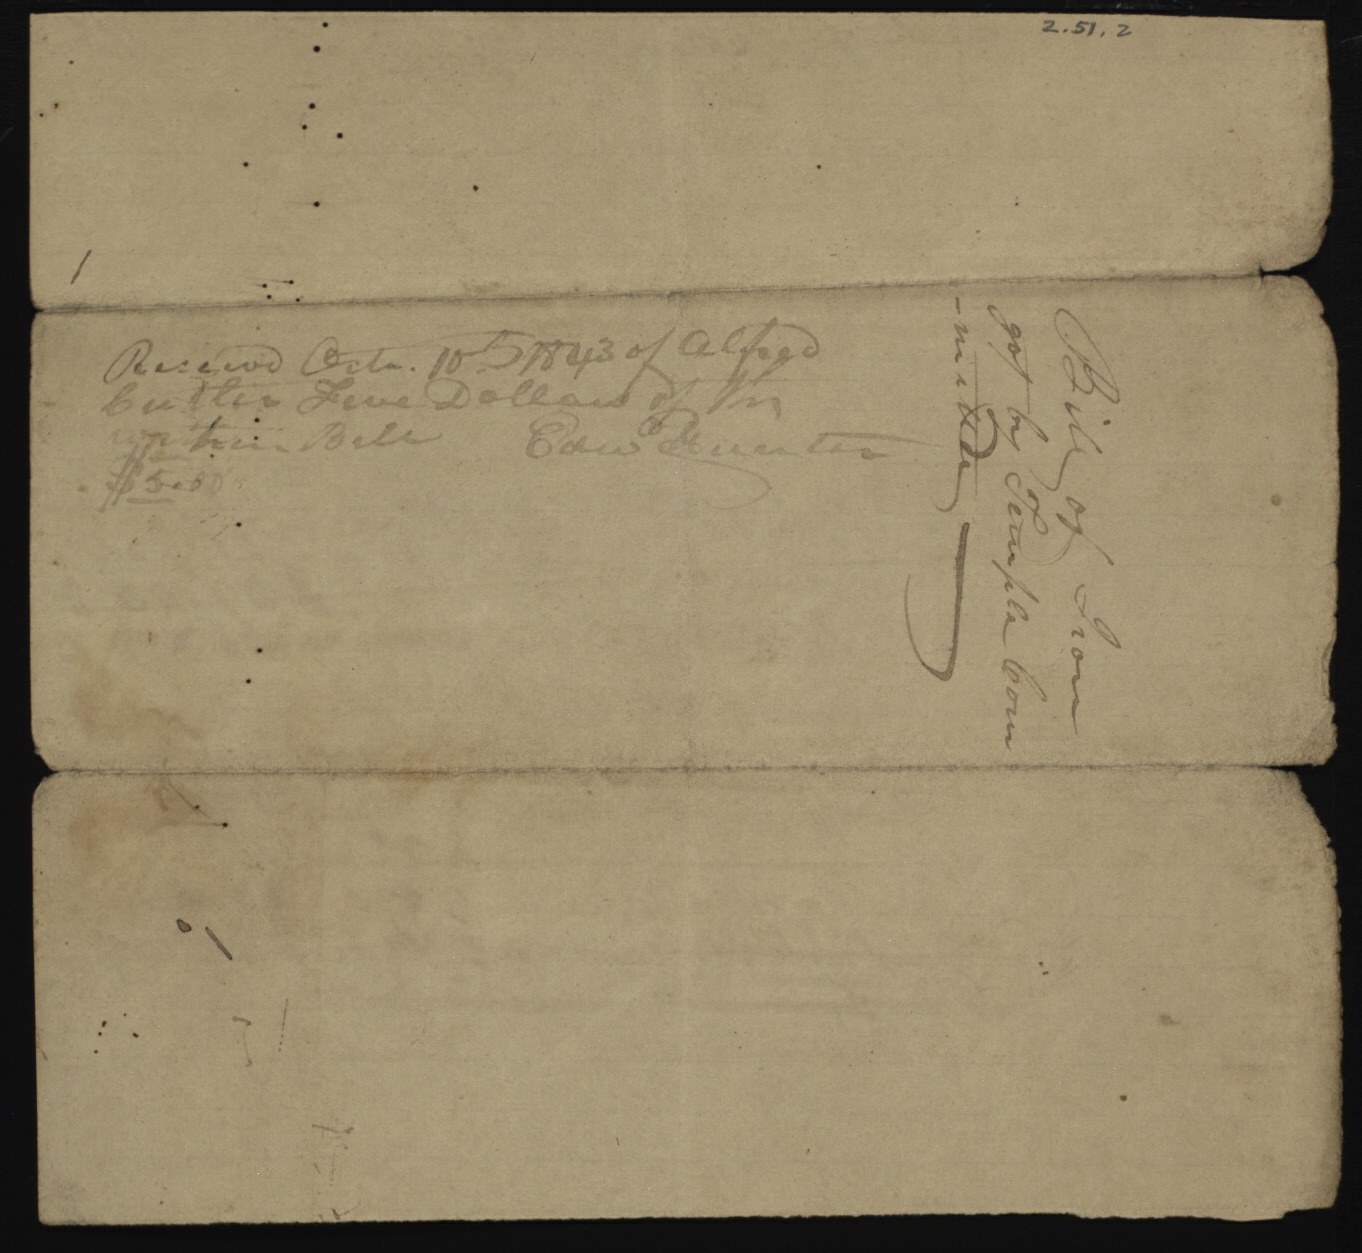 2.51.2
Received Octr. 10th 1843 of Alfred
Cutler Five Dollars of the
within Bill Edw Hunter
$5.00
Bill of Iron
got by Temple Com
-mittee